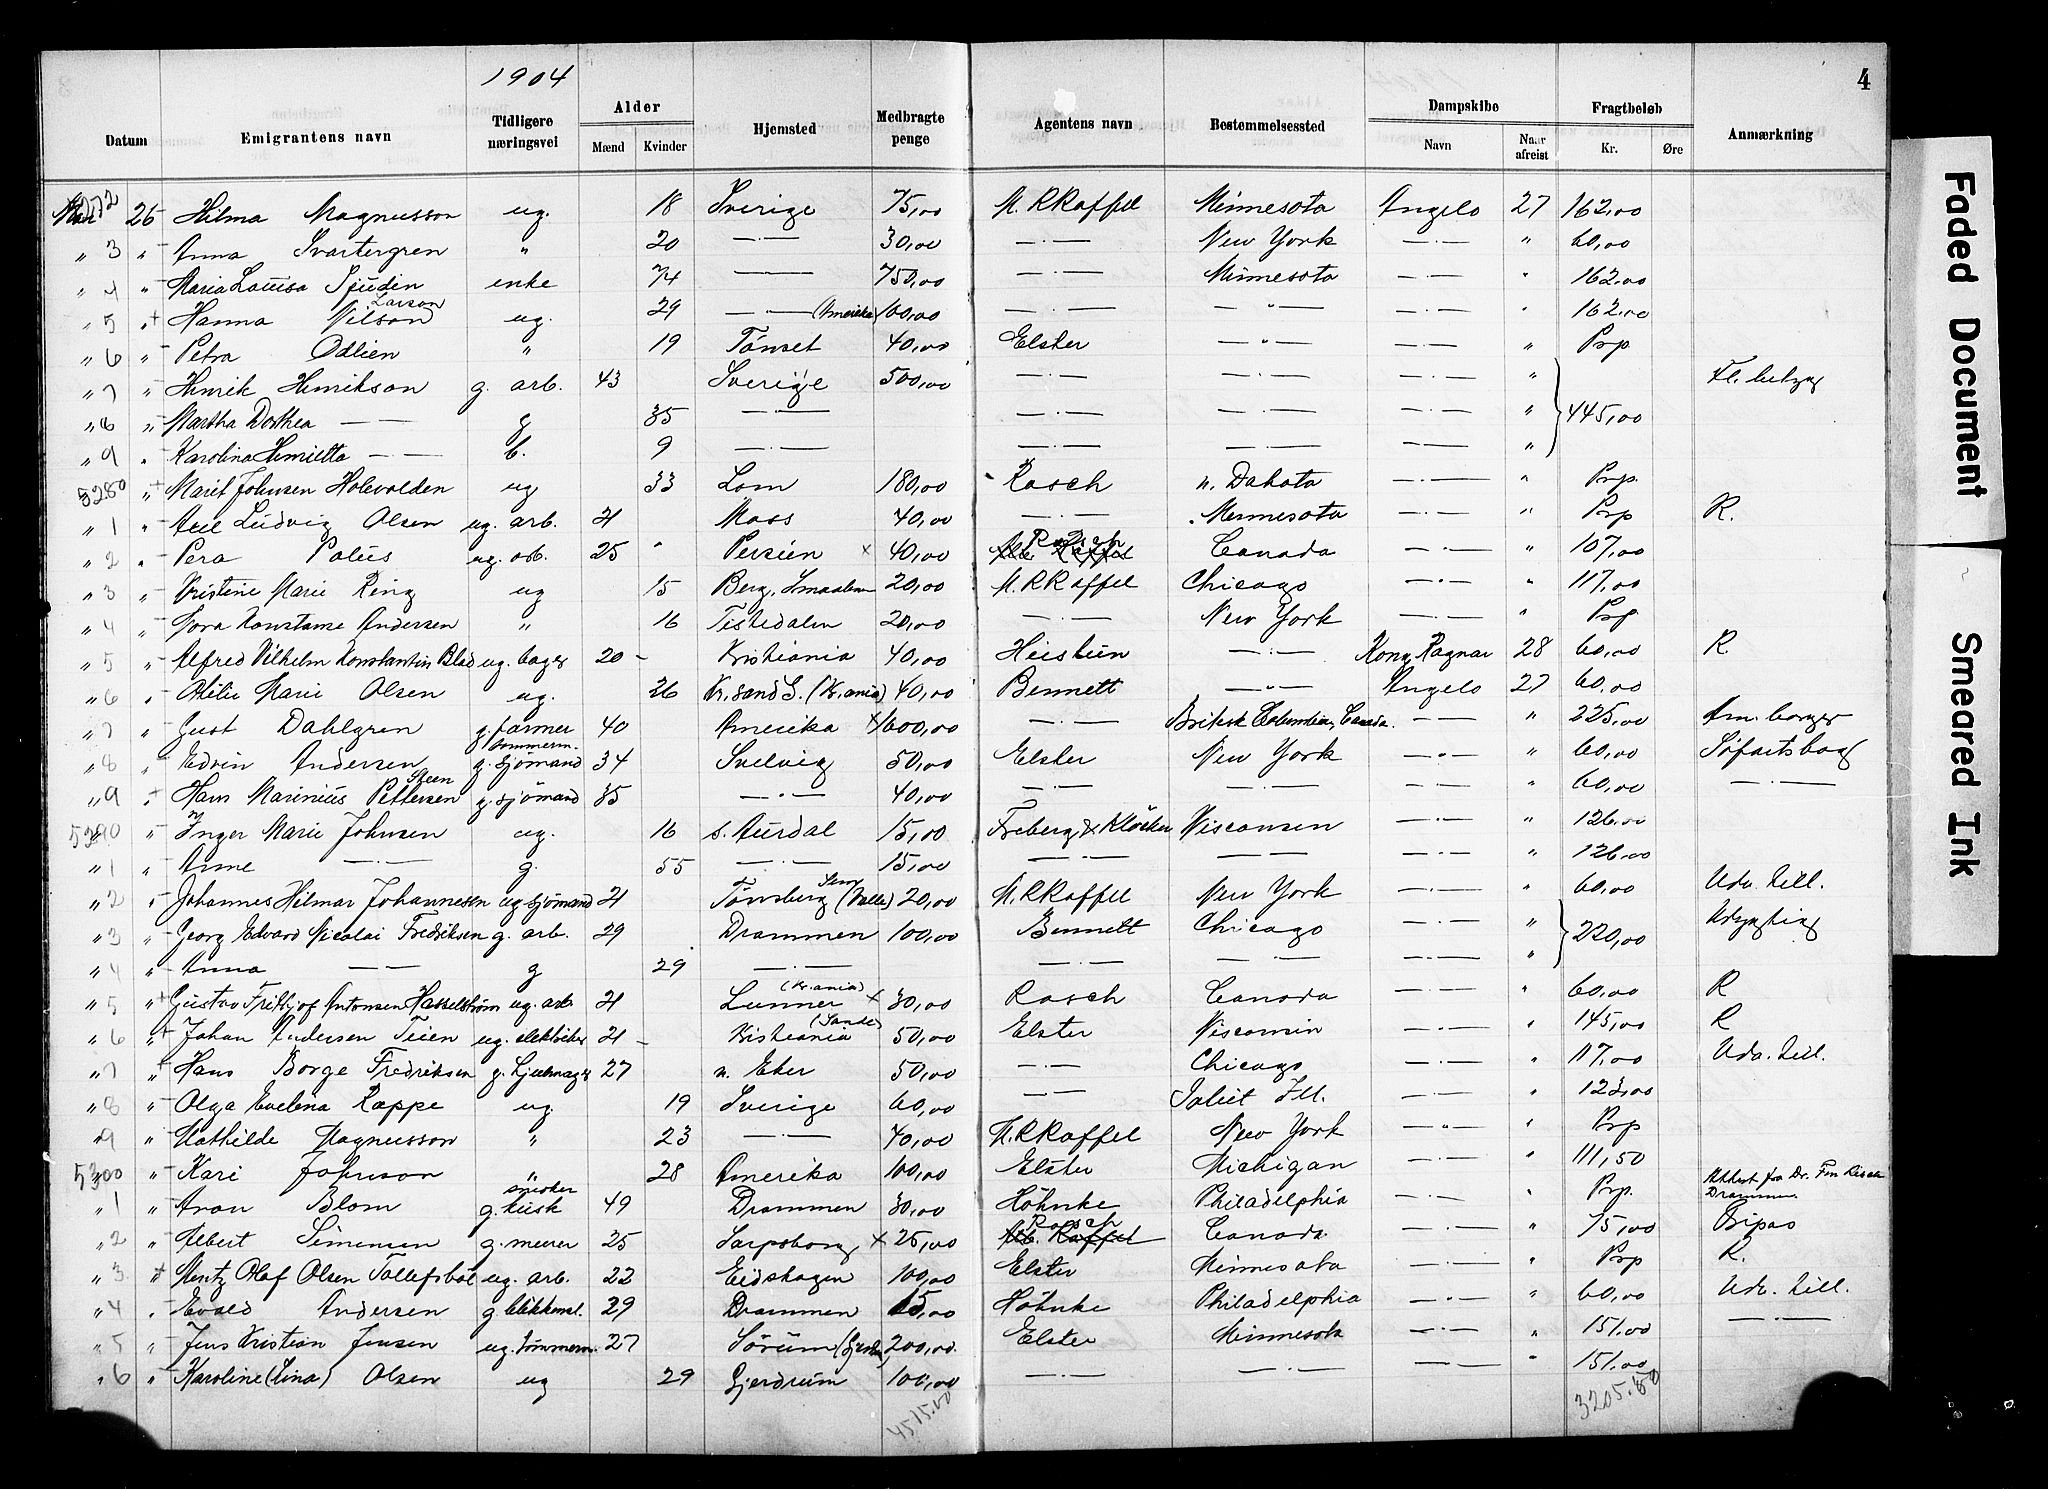 1904
4
Datum Emigrantens navn Tidligere næringsvei Alder Mænd Kvinder Hjemsted Medbragte penge Agentens navn Bestemmelsessted Dampskibe Navn Naar afreist Fragtbeløb Kr. Øre Anmærkning
26 Hilma Magnusson ug. 18 Sverige 75,00 M. R Raffel Minnesota Angelo 27 162,00
" 3 " Anna Svartergren " 20 — " — 30,00 — " — New York — " — " 60,00
" 4 " Maria Louisa Sjudin enke 74 — " — 750,00 — " — Minnesota — " — " 162,00
" 5 " + Hanna Nilson Larson ug. 29 — " — (Amerika) 100,00 — " — — " — — " — 162,00
" 6 " Petra Odlien " 19 Tönset 40,00 Elster — " — — " — " Prp
" 7 " Henrik Henrikson g. arb. 43 Sverige 500,00 — " — — " — — " — "
" 8 " Martha Dorthea — — g 35 — " — — " — — " — — " — " 445,00
" 9 " Karolina Henrietta — — b. 9 — " — — " — — " — — " — "
5280 " + Marit Johnsen Holevolden ug 33 Lom 180,00 Rasch n. Dakota — " — " Prp.
" 1 " Axel Ludvig Olsen ug. arb. 21 Moss 40,00 — " — Minnesota — " — " Prp R.
" 2 " Pera Palus ug. arb. 25 " Persien × 40,00 Rasch Canada — " — " 107,00
" 3 " Kristine Marie Ring ug 15 Berg, Smaalene 20,00 M. R Raffel Chicago — " — " 117,00
" 4 " Thora Konstanse Andersen " 16 Tistedalen 20,00 — " — New York — " — " Prp
" 5 " Alfred Vilhelm Konstantin Blad ug. bager 20 – Kristiania 40,00 Heistein — " — Kong Ragnar 28 60,00 R
" 6 " Otilie Marie Olsen ug. 26 Kr.sand S. (Kr.ania) 40,00 Bennett — " — Angelo 27 60,00
" 7 " Gust Dahlgren g. farmer 40 Amerika × 1600,00 — " — Britisk Columbien, Canada — " — " 225,00 Am. borger
" 8 " Edvin Andersen tømmerm. g. sjömand 34 Svelvig 50,00 Elster New York — " — " 60,00 Söfartsbog
" 9 " + Hans Marinius Pettersen Steen g. sjömand 35 — " — 40,00 — " — — " — — " — " 60,00 — " —
5290 " Inger Marie Johnsen ug. 16 s. Aurdal 15,00 Freberg & Klöcker Wisconsen — " — " 126,00
" 1 " Anne — " — g. 55 — " — 15,00 — " — — " — — " — " 126,00
" 2 " Johannes Hilmar Johannesen ug sjömand 21 Tönsberg Sem (Valle) 20,00 M. R Raffel New York — " — " 60,00 Udv. till.
" 3 " Georg Edvard Nicolai Fredriksen g. arb. 29 Drammen 100,00 Bennett Chicago — " — " 220,00
" 4 " Anna — — g 29 — " — — " — — " — — " — "
" 5 " + Gustav Fritjof Antonsen Hasselstrøm ug. arb 21 Lunner (Kr.ania) × 30,00 Rasch Canada — " — " 60,00 R
" 6 " + Johan Andersen Teien ug. elektriker 21 – Kristiania (Sande) 50,00 Elster Wisconsin — " — " 145,00 R
" 7 " + Hans Borge Fredriksen g. hjulmager 27 n. Eker 50,00 — " — Chicago — " — " 117,00 Udv. till.
" 8 " Olga Evelina Rappe ug. 19 Sverige 60,00 — " — Joliet Ill. — " — " 123,00
" 9 " Mathilde Magnusson " 23 — " — 40,00 M. R Raffel New York — " — " Prp
5300 " Kari Johnson " 28 Amerika 100,00 Elster Michigan — " — " 111,50
" 1 " Aron Blom snedker g. kusk 49 Drammen 30,00 Höhnke Philadelphia — " — " Prp. Attest fra Dr. Drammen
" 2 " Albert Simensen g. murer 25 Sarpsborg × 25,00 Rasch Canada — " — " 75,00 Bipas
" 3 " + Mentz Olaf Olsen Tollefsbøl ug. arb. 22 Eidskogen 100,00 Elster Minnesota — " — " Prp R.
" 4 " Evald Andersen g. blikkensl. 29 Drammen 15,00 Höhnke Philadelphia — " — " 60,00 Udv. till.
" 5 " Jens Kristian Jensen ug. tömmerm. 27 Sörum 200,00 Elster Minnesota — " — " 151,00 — " —
" 6 " Karoline (Lina) Olsen ug 29 Gjerdrum 100,00 — " — — " — — " — " 151,00
4515.00 3205.50
Faded Document
Smeared Ink